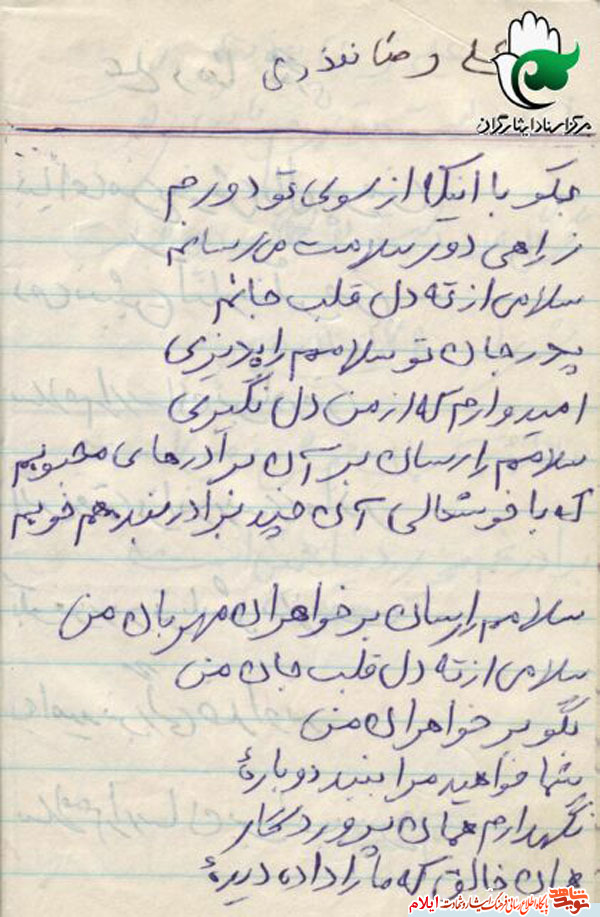 علی رضا نذری
مرکز اسناد ایثارگران
بگو با اینکه از سوی تو دورم
ز راهی دور سلامت می رسانم
سلامی از ته دل قلب جانم
پدر جان تو سلامم را پذیری
امیدوارم که از من دل نگیری
سلامم را رسان بر آن برادرهای محبوبم
که با خوشحالی آن چند برادر بنده هم خوبم
سلامم را رسان بر خواهران مهربان من
سلامی از ته دل قلب جان من
بگو بر خواهران من
شما خواهید مرا بینید دوبارهٔ
نگهدارم همان پروردگار
همان خالق که ما را داده دیدهٔ
نوید شاهد پایگاه اطلاع رسانی فرهنگ ایثار و شهادت ایلام